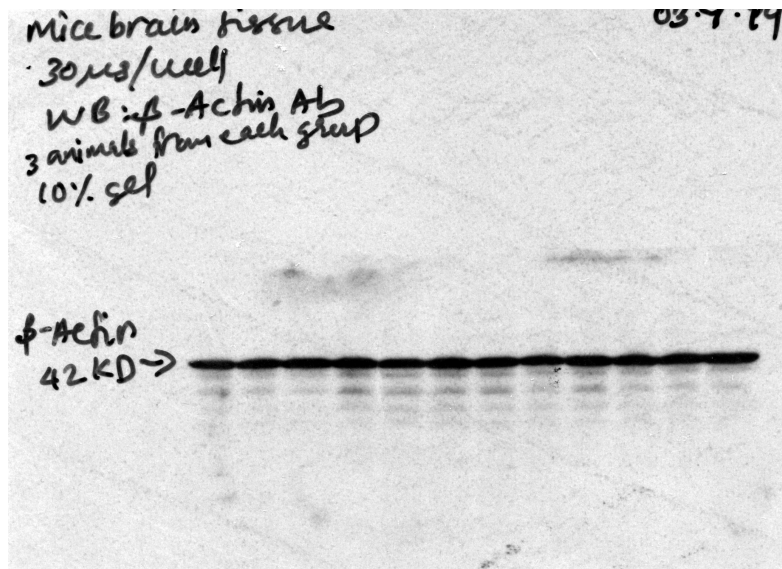 Mice brain tissue
03.9.19
30 µg/well
WB: β-Actin Ab
3 animals from each group
10% gel
β-Actin
42 KD →